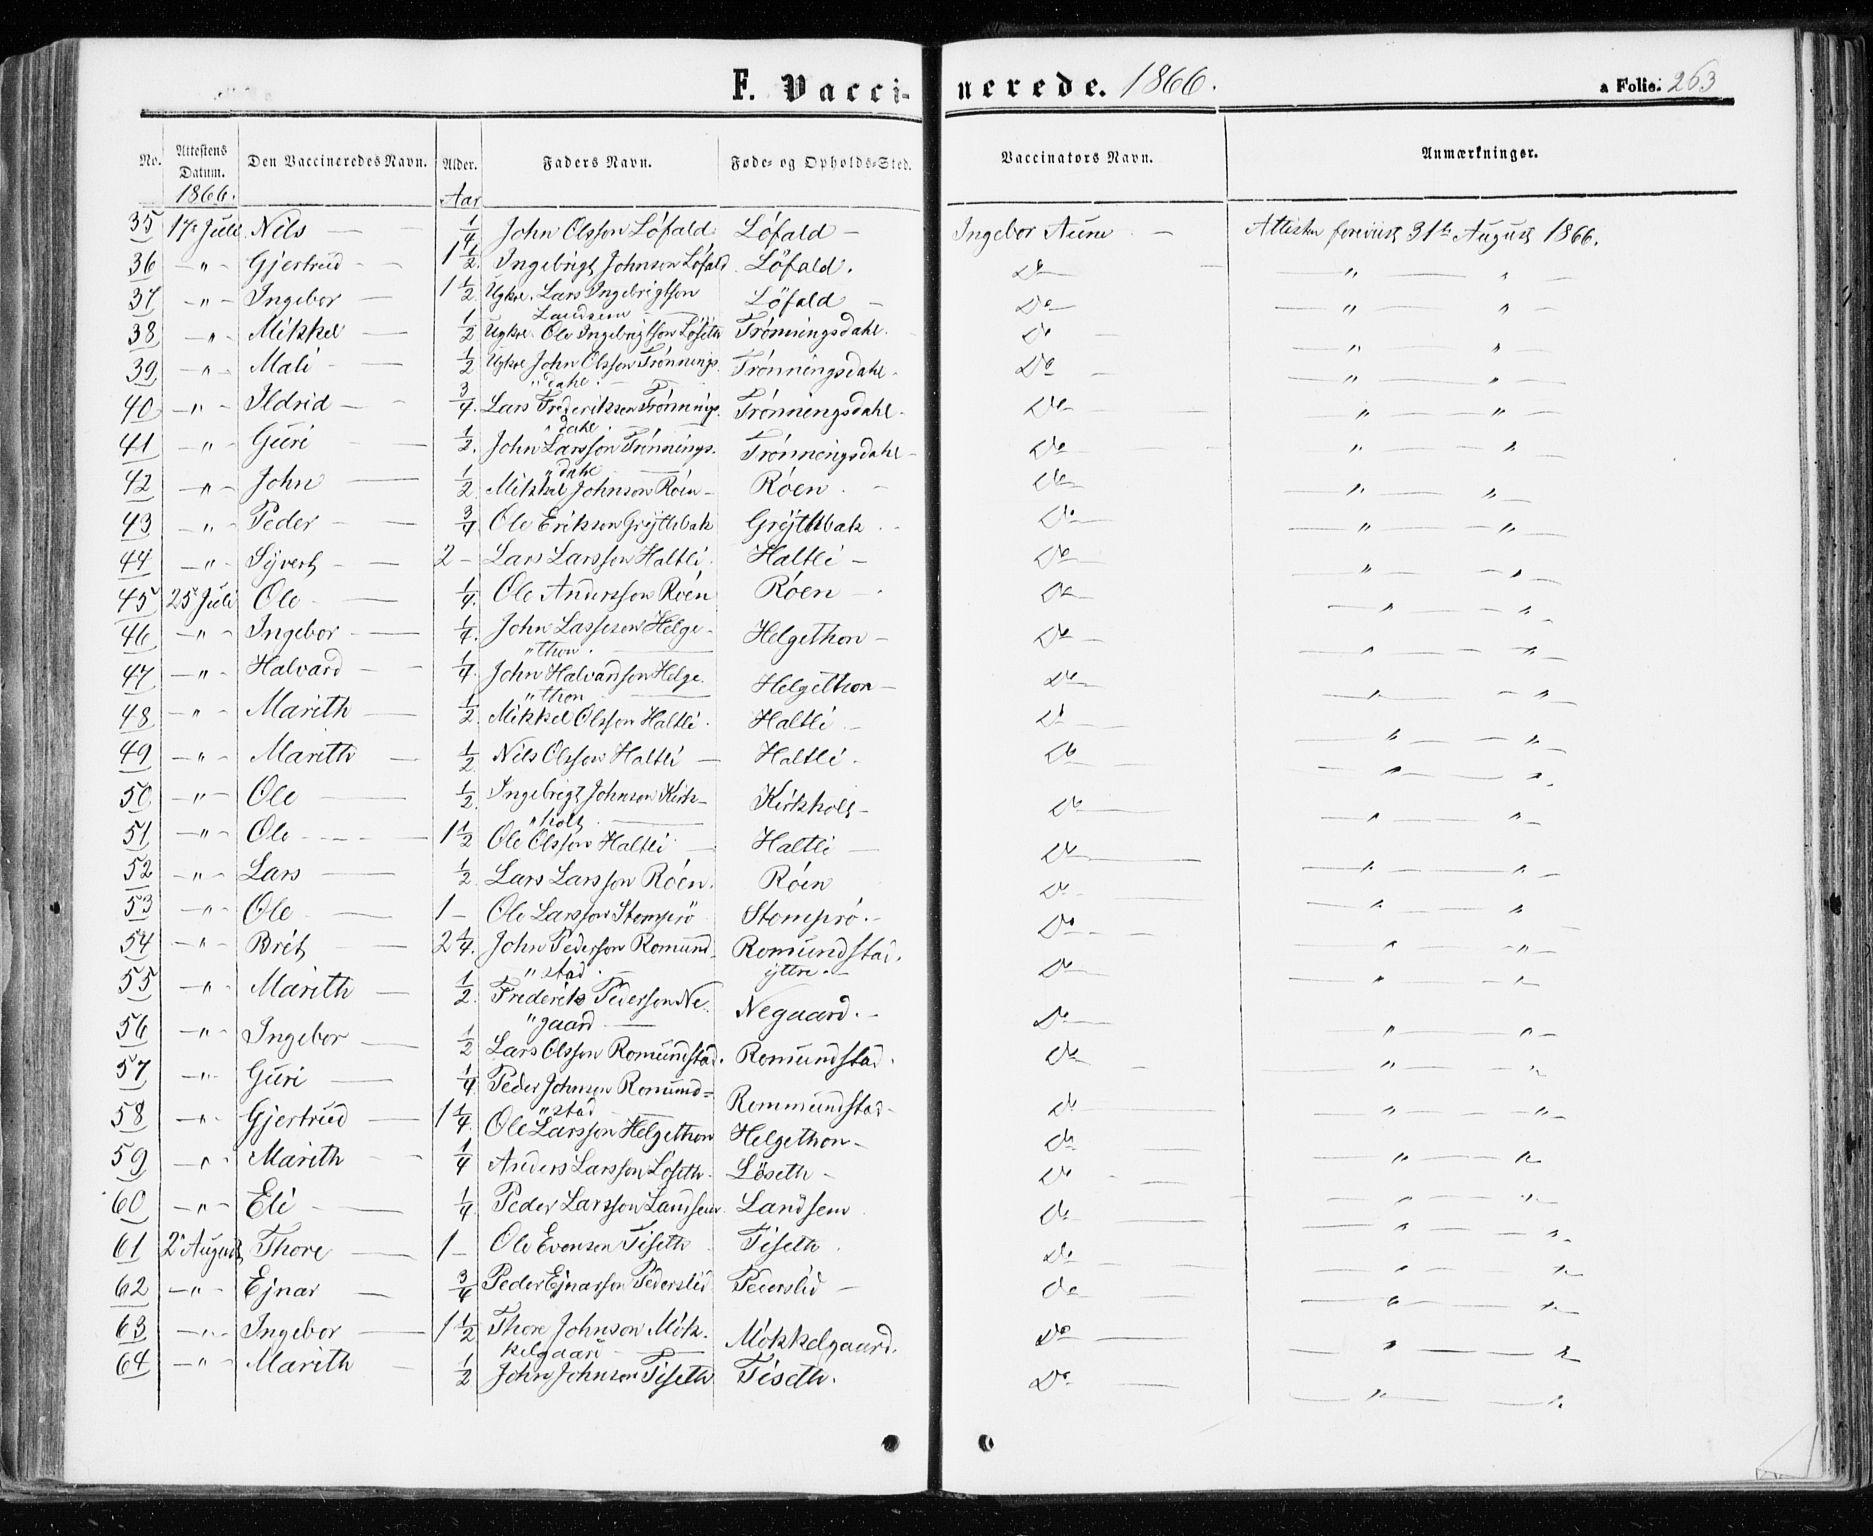 F. Vaccinerede. 1866. a Folio. 263
No. Attestens Datum. Den Vaccineredes Navn. Alder. Faders Navn. Føde- og Opholds-Sted. Vaccinators Navn. Anmærkninger.
1866. Aar
35 17 Juli Nils — 1/4 John Olsson Löfald Löfald — Ingebor Aune — Attisten forevist 31te August 1866.
36 — " — Gjertrud — 1 1/2 Ingebrigt Johnsen Löfald Löfald. Do — " — "
37 — " — Ingebor — 1 1/2 Ugkrl. Lars Ingebrigtson Löfald — Do — " — "
Landsem —
38 — " — Mikkel 1/2 Ugkrl. Ole Ingebrigtson Løseth Trönningsdahl. Do — " — "
39 — " — Mali — 1/2 Ugkrl John Olsson Trönnings Trönningsdahl. Do — " — "
"dahl. —
40 — " — Ildrid — 3/4. Lars Frederiksen Trönnings. Trönningsdahl. Do — " — "
"dahl. —
41 — " — Guri — 1/2. John Larsson Trönnings. Trönningsdahl — Do — " — "
"dahl —
42 — " — John — 1/2 Mikkel Johnson Röen — Röen. — Do — " — "
43 — " — Peder — 3/4 Ole Eriksen Gryttbak Gryttbak Do — " — "
44 — " — Syvert — 2 — Lars Larsson Haltli. Haltli — Do — " — "
45 25 Juli Ole — 1/4. Ole Andersson Röen Röen — Do — " — "
46 — " — Ingebor — 1/4. John Larsson Helge- Helgethon — Do — " — "
"thon. —
47 — " — Halvard — 1/4. John Halvardson Helge. Helgethon — Do — " — "
"thon —
48 — " — Marith — 1/2 Mikkel Olsson Haltli. Haltli — Do — " — "
49 — " — Marith — 1/2 Nils Olsson Haltli — Haltli. Do — " — "
50 — " — Ole — 1/2. Ingebrigt Johnson Kirk- Kirkholt — Do — " — "
"holt. —
51 — " — Ole — 1 1/2 Ole Olsson Haltli — Haltli — Do — " — "
52 — " — Lars — 1/2 Lars Larsson Röen. Röen Do — " — "
53 — " — Ole — 1 — Ole Larsson Stomprö Stomprö. — Do — " — "
54 — " — Brit — 2 1/4. John Pederson Romund- Romundstad. Do — " — "
"stad. — yttre. —
55 — " — Marith — 1/2. Frederik Pederson Ne. Negaard. — Do — " — "
"gaard —
56 — " — Ingebor — 1/2 Lars Olsson Romundstad. Romundstad. Do — " — "
57 — " — Guri — 1/4 Peder Johnson Romund= Rommundstad — Do — " — "
"stad —
58 — " — Gjertrud — 1 1/4. Ole Larsson Helgethon Helgethon — Do — " — "
59 — " — Marith — 1/4 Anders Larsson Löseth. Löseth — Do — " — "
60 — " — Eli — 1/4 Peder Larsson Landsem. Landsem Do — " — "
61 2 August Thore — 1 — Ole Evensen Tiseth Tiseth. Do — " — "
62 — " — Ejnar — 3/4 Peder Ejnarson Pederslid Pederslid — Do — " — "
63 — " — Ingebor — 1 1/2 Thore Johnson Mök. Mökkelgaard. Do — " — "
kelgaard —
64 — " — Marith — 1/2 John Johnson Tiseth Tiseth. Do — " — "